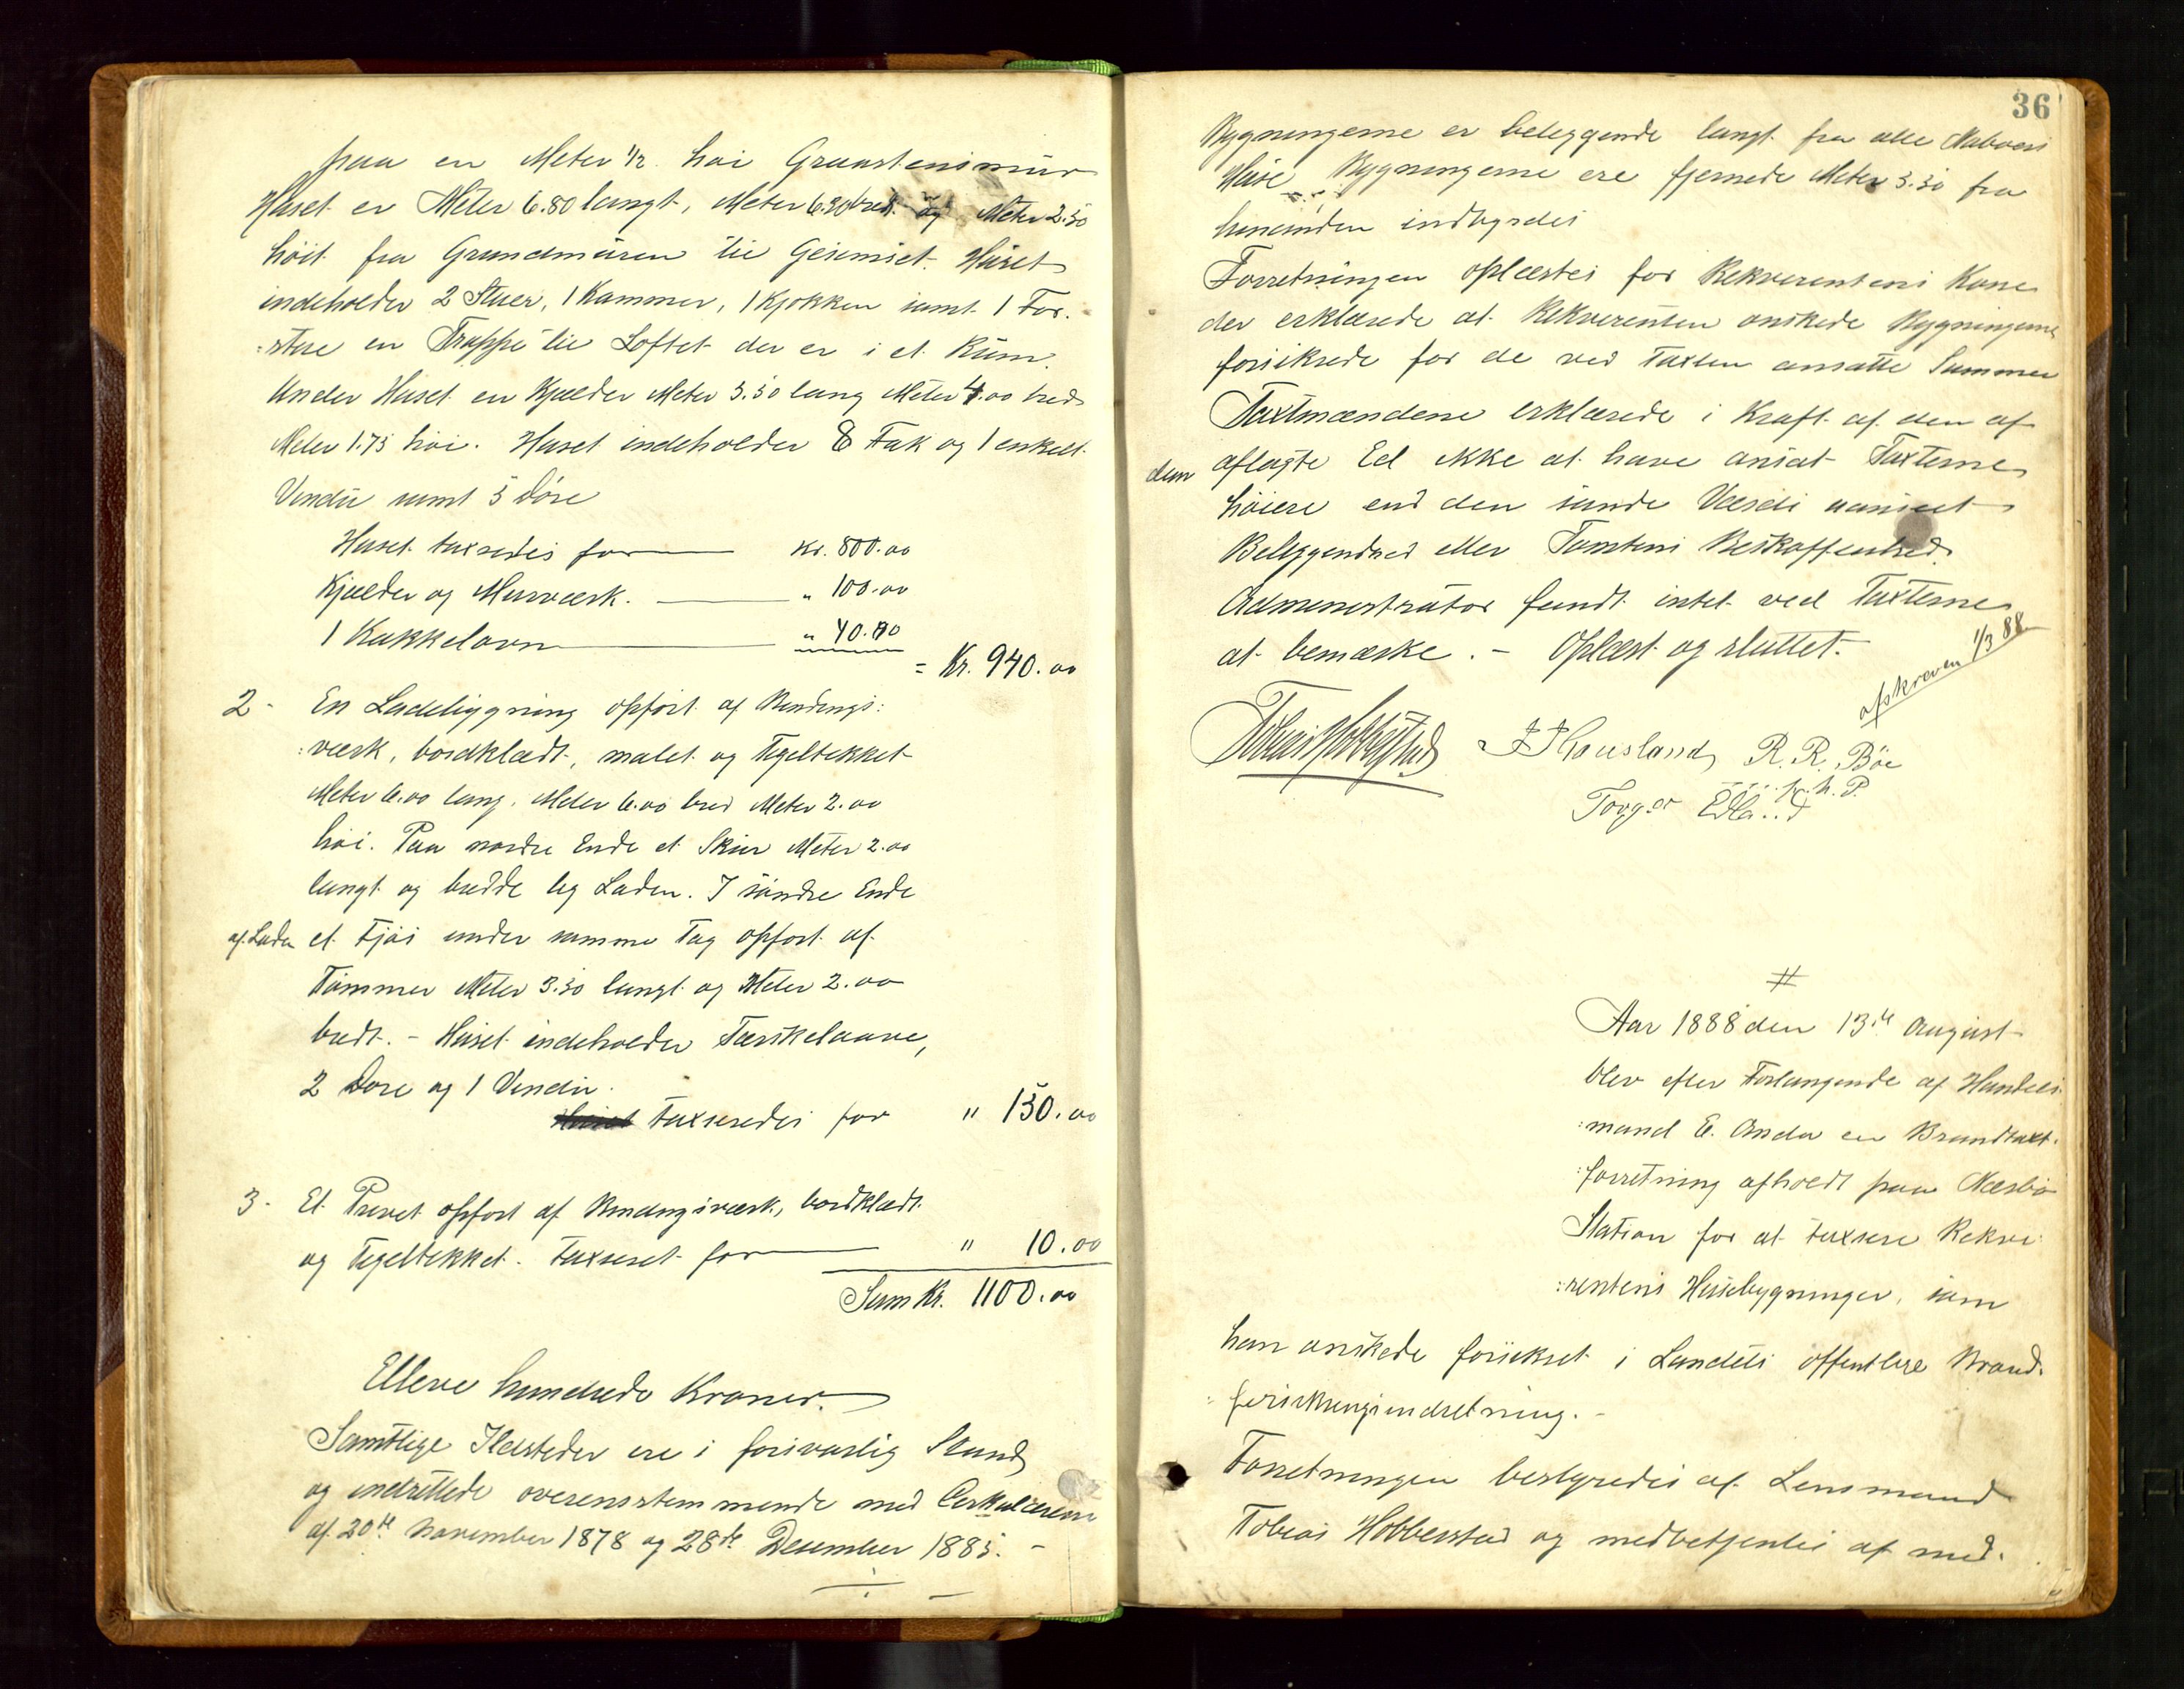 paa en Meter 1/2 høi Graastensmur
Huset er Meter 6.80 langt, Meter 6.30 bred og Meter 2.50
høit fra Grundmuren til Gesimset. Huset
indeholder 2 Stuer, 1 Kammer, 1 Kjøkken samt 1 For-
:stue en Trappe til Loftet der er i et Rum.
Under Huset en Kjælder Meter 3.50 lang Meter 4.00 bred
Meter 1.75 høi. Huset indeholder 8 Fak og 1 enkelt
Vindu samt 5 Døre
Huset taxeredes for Kr. 800.00
Kjælder og Murværk. " 100.00
1 Kakkelovn " 40.00
= Kr. 940.00
2 - En Ladebygning opført af Bindings:
:værk, bordklædt, malet og Tegeltækket
Meter 6.00 lang, Meter 6.00 bred Meter 2.00
høi. Paa nordre Ende et Skur Meter 2.00
langt og bredde lig Laden. I søndre Ende
af Laden et Fjøs under samme Tag opført af
Tømmer Meter 3.50 langt og Meter 2.00
bredt. - Huset indeholder Tærskelaave,
2 Døre og 1 Vindu.
Taxeredes for " 150.00
3 - Et Privet opført af Bindingsværk, bordklædt
og Tegeltækket. Taxeret for " 10.00
Sum Kr. 1100.00
Elleve hundrede Kroner.
Samtlige Ildsteder ere i forsvarlig Stand
og indrettede overensstemmende med Cirkulærerne
af 20de November 1878 og 28de Desember 1885. -
36
Bygningerne er beliggende langt fra alle Naboers
Huse Bygningerne ere fjernede Meter 3.50 fra
hinanden indbyrdes
Forretningen oplæstes for Rekvirentens Kone
der erklærede at Rekvirenten ønskede Bygningerne
forsikrede for de ved Taxten ansatte Summer
Taxtmændene erklærede i Kraft af den af
dem aflagte Ed ikke at have ansat Taxterne
høiere end den sande Værdi uanseet
Beliggenhed eller Tomtens Beskaffenhed.
Administrator fandt intet ved Taxterne
at bemærke. - Oplæst og sluttet.
afskreven 1/3 88
Tobias Hobberstad J J Hausland R. R. Bøe
m. p. P.
Torger Edland
#
Aar 1888 den 13de August
blev efter Forlangende af Handels-
:mand E. Anda en Brandtaxt-
:forretning afholdt paa Nærbø
Station for at taxere Rekvi-
:rentens Husebygninger, som
han ønskede forsikret i Landets offentlige Brand-
:forsikringsindretning. -
Forretningen bestyredes af Lensmand
Tobias Hobberstad og medbetjentes af med-